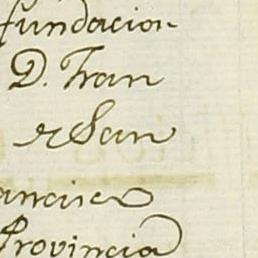 fundacion
D. Fran
r San
ancisco
Provincia